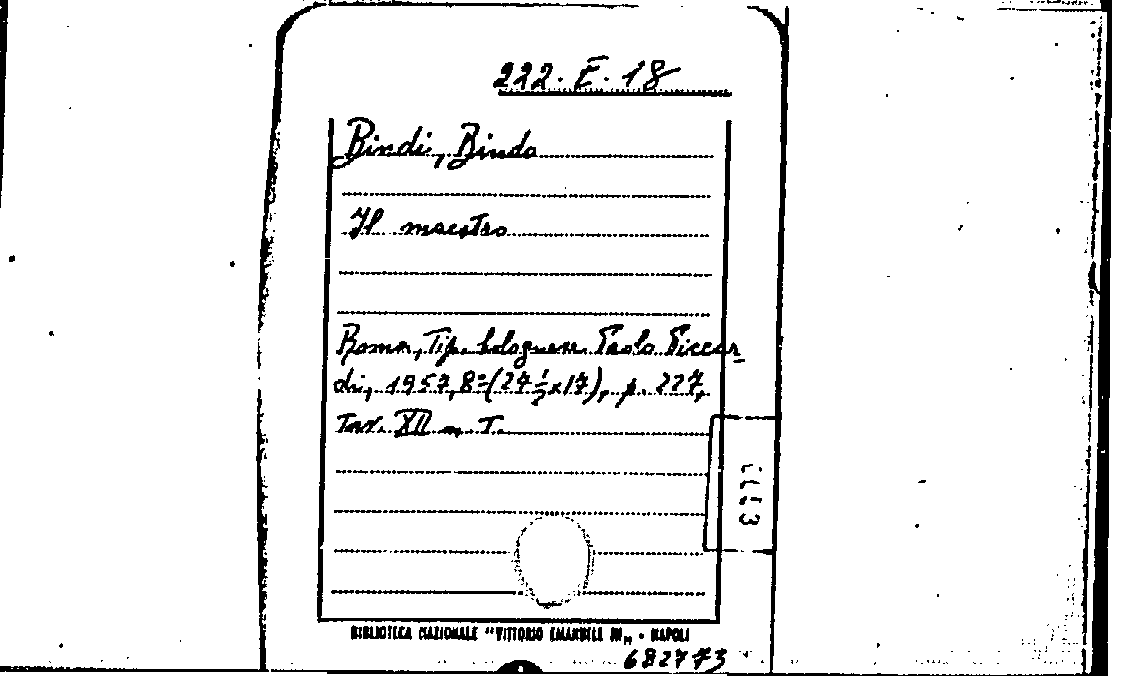 222. E. 18
Bindi, Bindo
Il maestro
Roma, Tip. bolognese Paolo Piccar
di, 1957, 8º (24 ½ x 17), p. 227,
Tav. XII n. T.
BIBLIOTECA NAZIONALE "VITTORIO EMANUELE III" - NAPOLI
682773